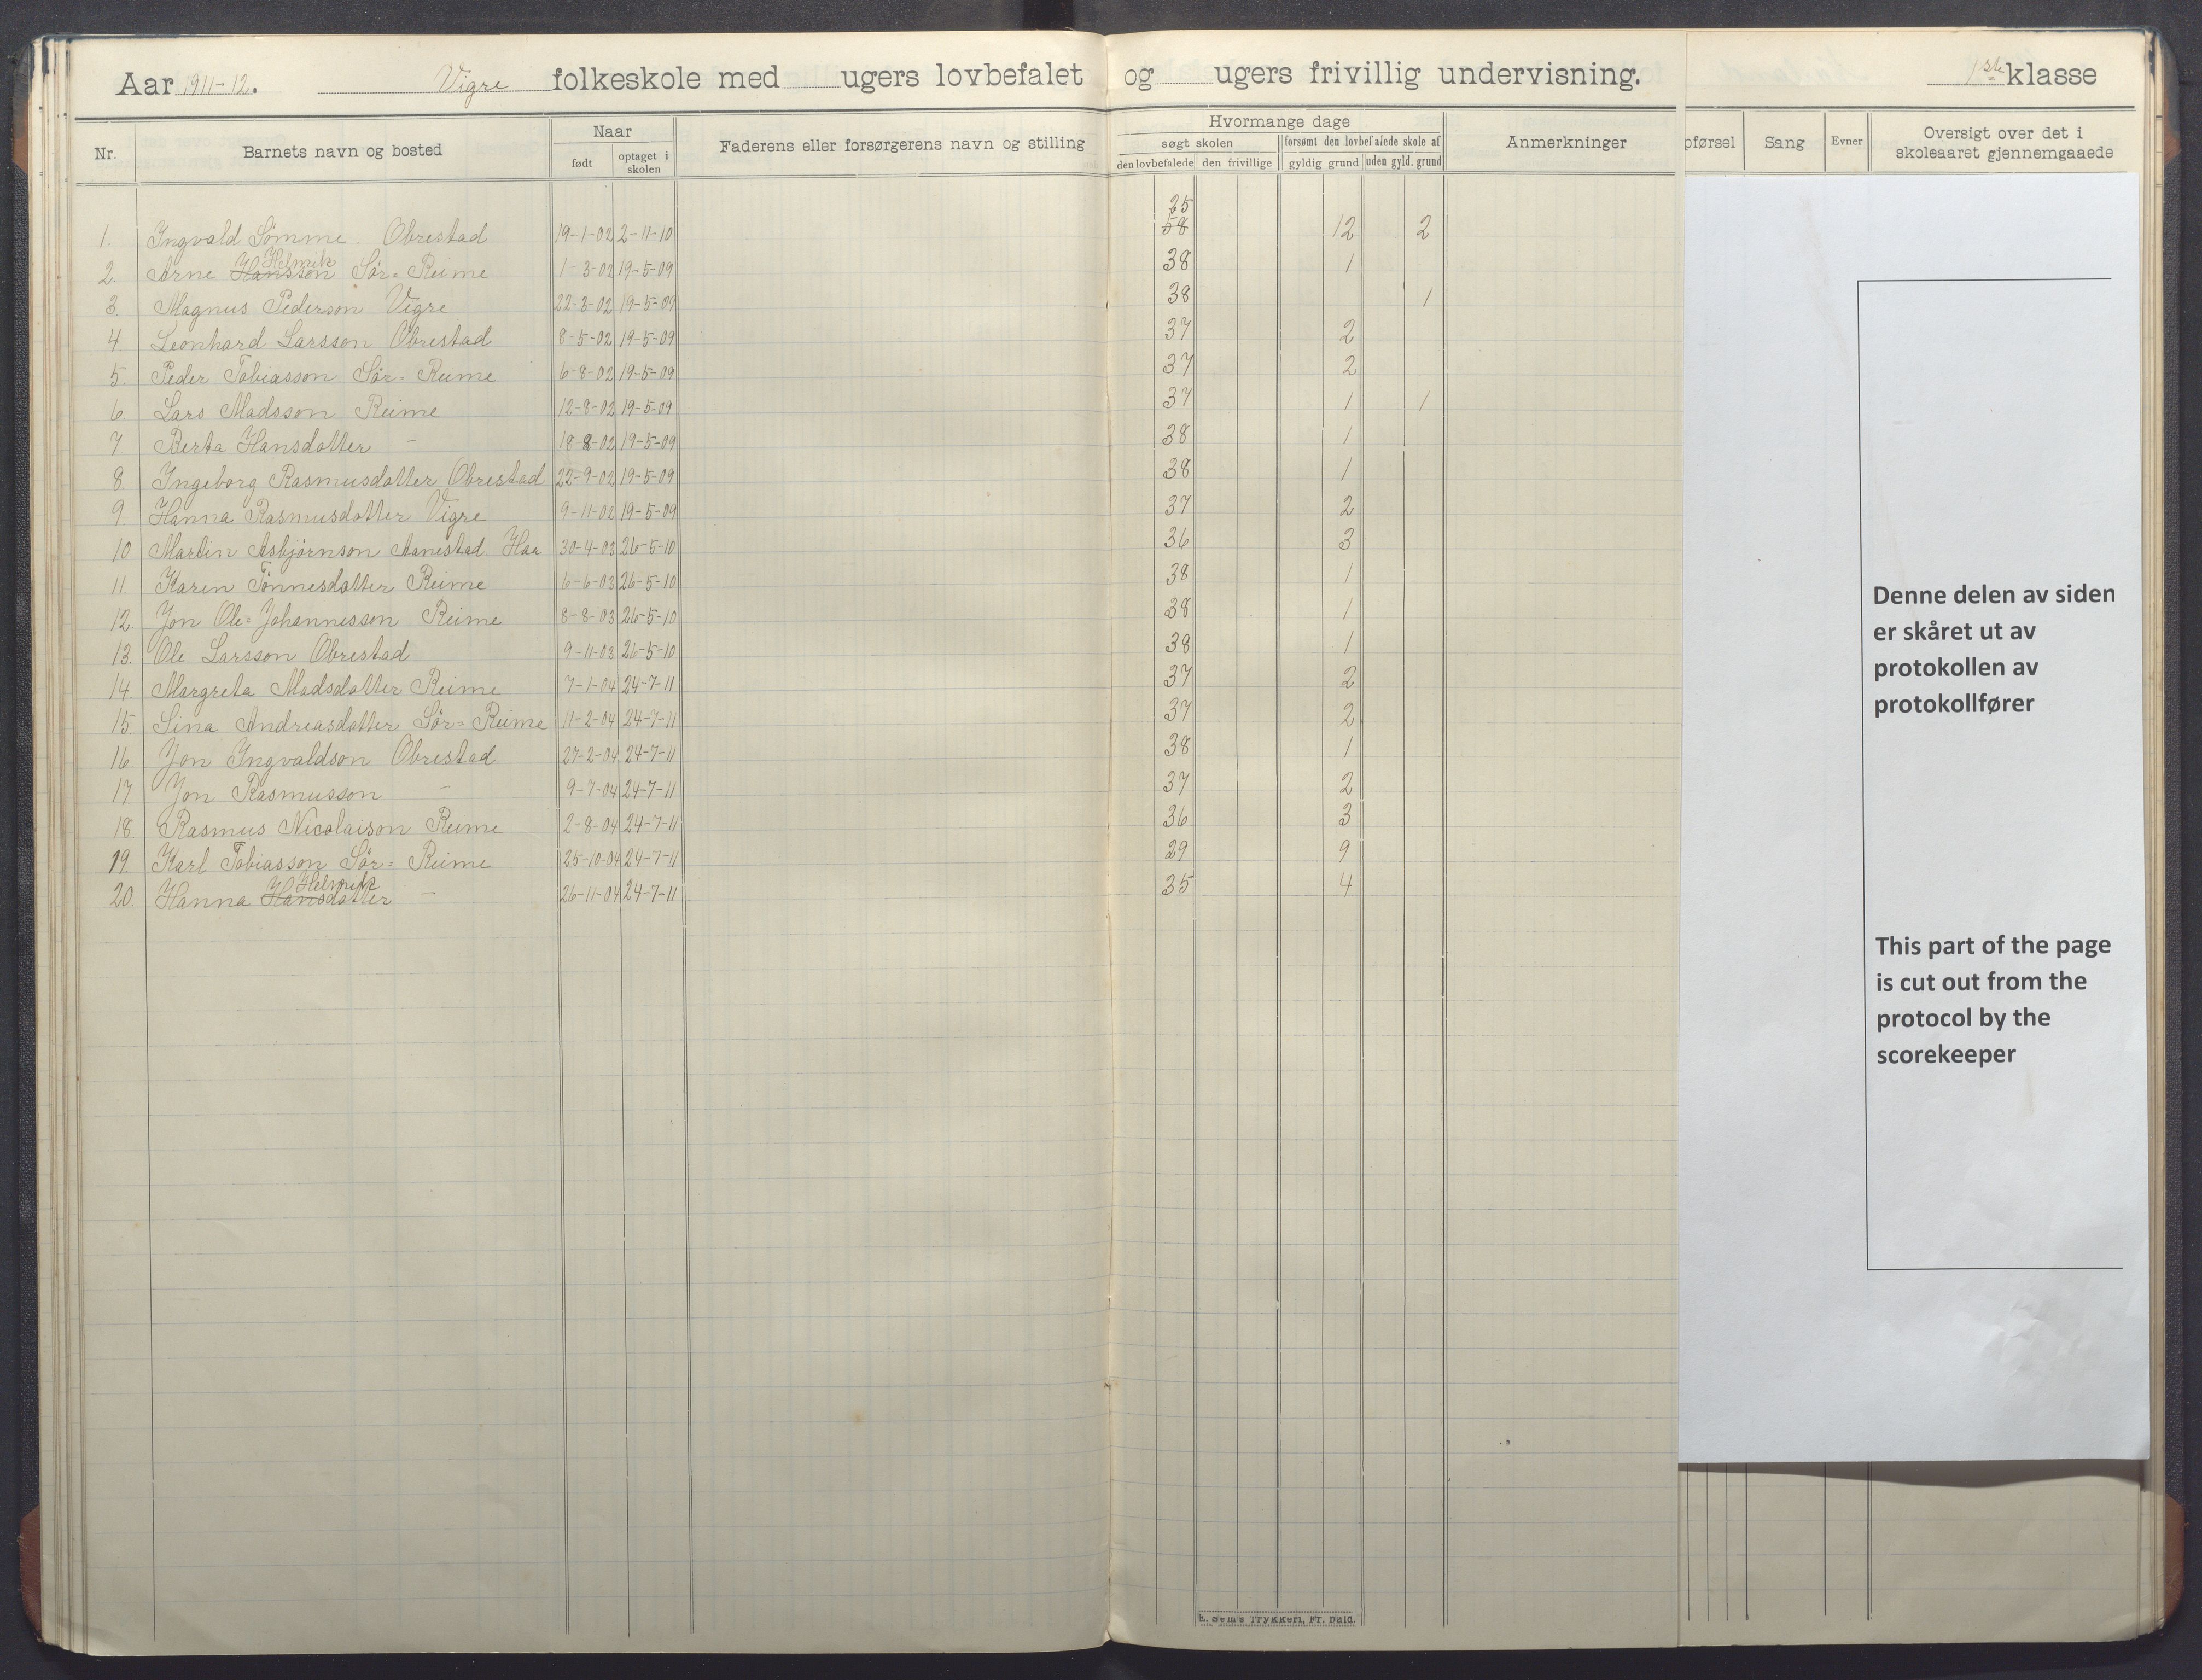 Aar 1911-12. Vigre folkeskole med ugers lovbefalet og ugers frivillig undervisning. 1ste klasse
Nr. Barnets navn og bosted Naar født optaget i skolen Faderens eller forsørgerens navn og stilling Hvormange dage søgt skolen den lovbefalede den frivillige forsømt den lovbefalede skole af gyldig grund uden gyld. grund Anmerkninger pførsel Sang Evner Oversigt over det i skoleaaret gjennemgaaede
25
1. Ingvald Sömme. Obrestad 19-1-02 2-11-10 58 12 2
Helmik
2. Arne Hansson Sör-Reime 1-3-02 19-5-09 38 1
3. Magnus Pederson Vigre 22-3-02 19-5-09 38 1
4. Leonhard Larsson Obrestad 8-5-02 19-5-09 37 2
5. Peder Tobiasson Sör-Reime 6-8-02 19-5-09 37 2
6 Lars Madsson Reime 12-8-02 19-5-09 37 1 1
7 Berta Hansdatter - 18-8-02 19-5-09 38 1
8. Ingeborg Rasmusdatter Obrestad 22-9-02 19-5-09 38 1
9. Hanna Rasmusdatter Vigre 9-11-02 19-5-09 37 2
10 Martin Asbjörnson Aanestad Haa 30-4-03 26-5-10 36 3
11. Karen Tönnesdatter Reime 6-6-03 26-5-10 38 1
12. Jon Ole=Johannesson Reime 8-8-03 26-5-10 38 1
13. Ole Larsson Obrestad 9-11-03 26-5-10 38 1
14. Margreta Madsdatter Reime 7-1-04 24-7-11 37 2
15. Sina Andreasdatter Sör=Reime 11-2-04 24-7-11 37 2
16 Jon Ingvaldson Obrestad 27-2-04 24-7-11 38 1
17. Jon Rasmusson - 9-7-04 24-7-11 37 2
18. Rasmus Nicolaison Reime 2-8-04 24-7-11 36 3
19. Karl Tobiasson Sör=Reime 25-10-04 24-7-11 29 9
Helmik
20. Hanna Hansdatter - 26-11-04 24-7-11 35 4
Denne delen av siden
er skåret ut av
protokollen av
protokollfører
This part of the page
is cut out from the
protocol by the
scorekeeper